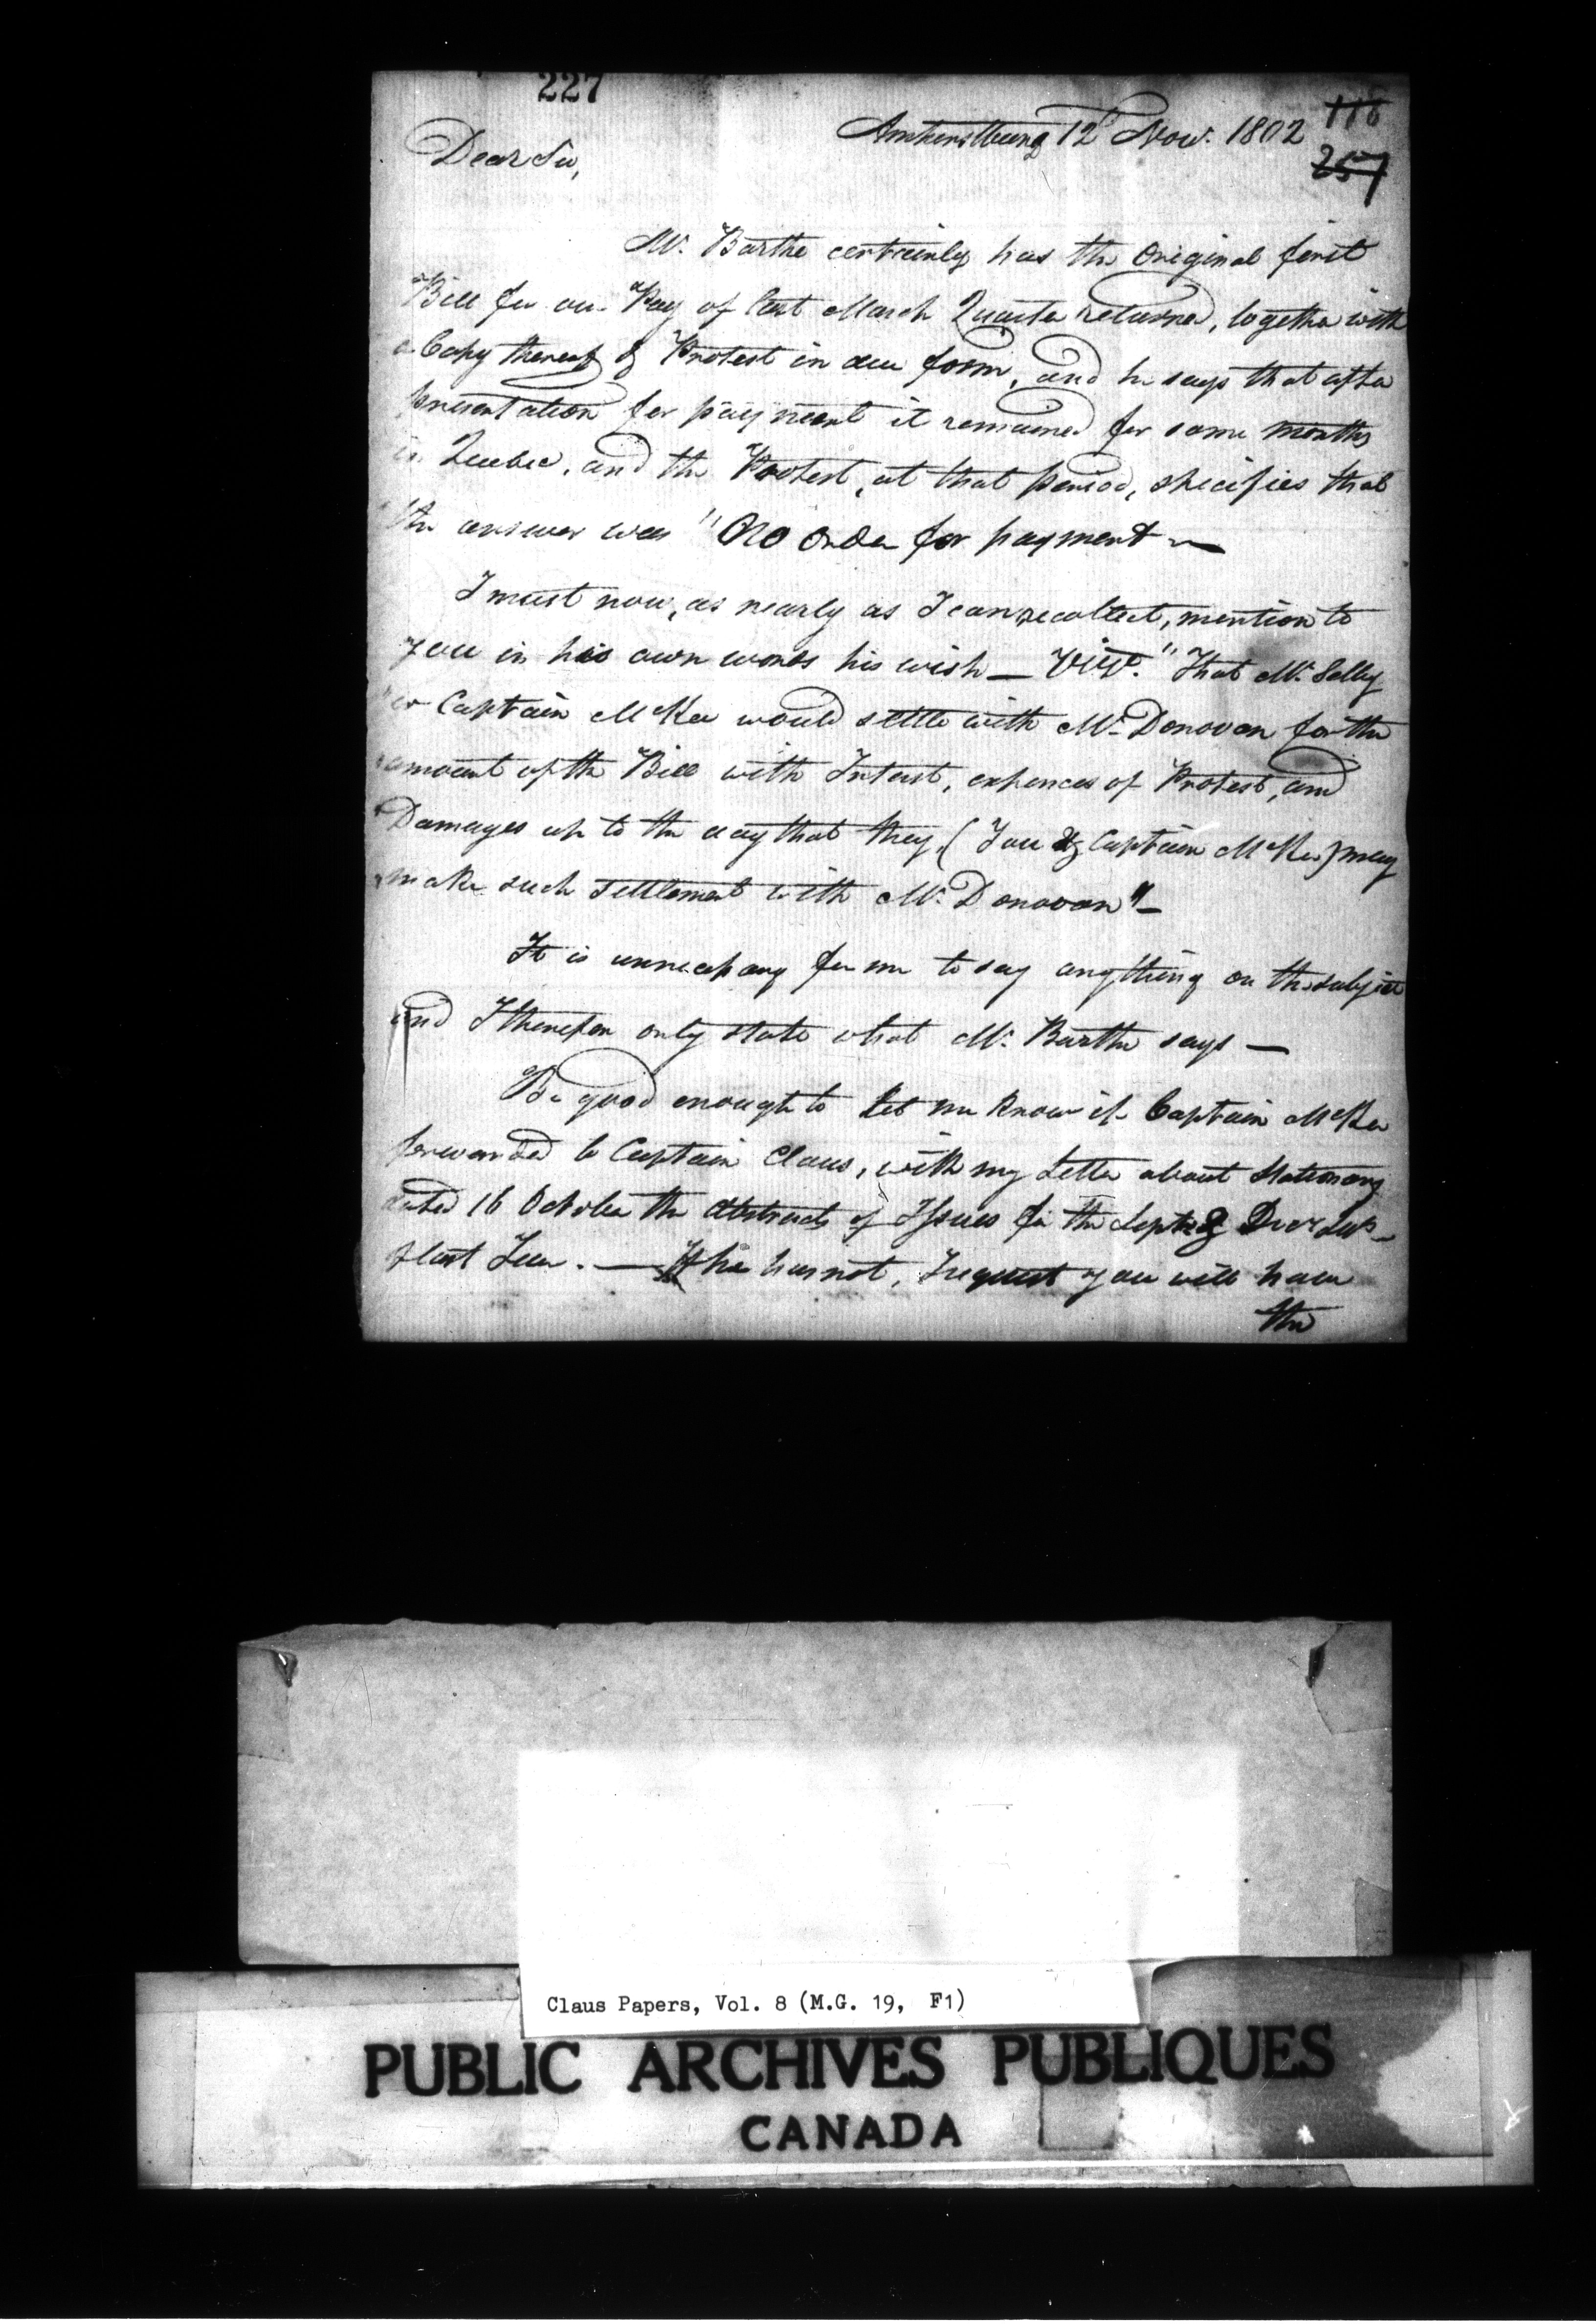 227
Amherstburg 12th Nov. 1802
116
257
Dear Sir,
Mr. Barthe certainly has the Original first
Bill for our Pay of last March Quarter returned, together with
a Copy thereof & Protest in due form, and he says that after
presentation for payment it remained for some months
in Quebec, and the Protest, at that period, specifies that
the answer was "No Order for payment —
I must now, as nearly as I can recollect, mention to
you in his own words his wish — Vizt. "That Mr. Selby
"or Captain McKee would settle with Mr. Donovan for the
"amount of the Bill with Interest, expences of Protest, and
"Damages up to the day that they, (You & Captain McKee) may
"make such settlement with Mr. Donovan" —
It is unnecessary for me to say anything on the subject
and I therefore only state what Mr. Barthe says —
Be good enough to let me know if Captain McKee
forwarded to Captain Claus, with my Letter about Stationary
dated 16 October the Abstracts of Issues for the Septr. & Decr.
of last Year. — If he has not, I request you will have
the
Claus Papers, Vol. 8 (M.G. 19, F1)
PUBLIC ARCHIVES PUBLIQUES
CANADA